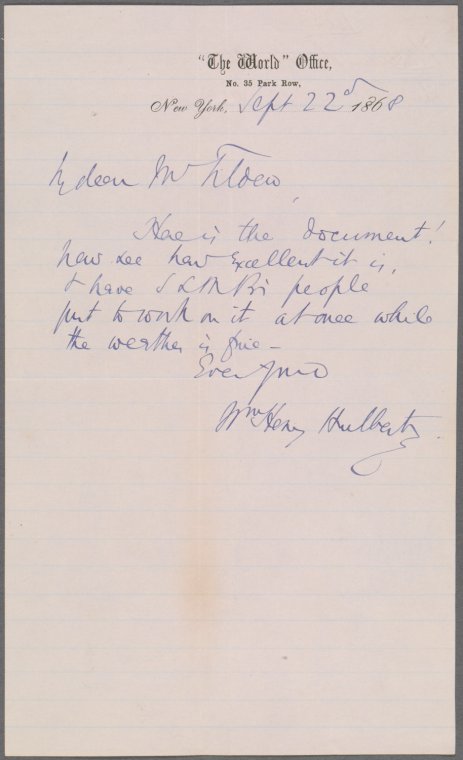 "The World" Office,
No. 35 Park Row,
New York, Sept 22d 1868
My dear Mr Tilden,
Here is the document!
Now see how Excellent it is,
& have people
put to work on it at once while
the weather is fine –
Ever yrs
Wm Henry Hurlbert